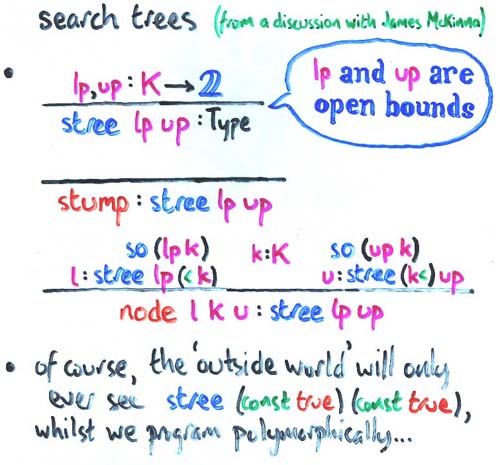 search trees (from a discussion with James McKinna)
• lp, up : K → 2
lp and up are
open bounds
stree lp up : Type
stump : stree lp up
so (lp k) k : K so (up k)
l : stree lp (< k) u : stree (k <) up
node l k u : stree lp up
• of course, the 'outside world' will only
ever see stree (const true) (const true),
whilst we program polymorphically...